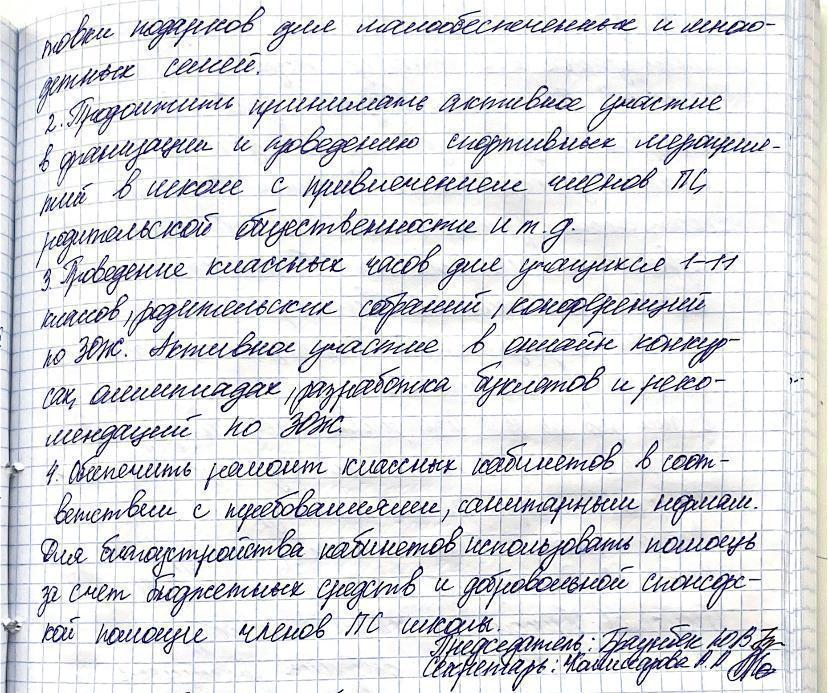 товки подарков для малообеспеченных и много-
детных семей.
2. Продолжить принимать активное участие
в организации и проведению спортивных мероприя-
тий в школе с привлечением членов ПС,
родительской общественности и т.д.
3. Проведение классных часов для учащихся 1-11
классов, родительских собраний, конференций
по ЗОЖ. Активное участие в онлайн конкур-
сах, олимпиадах, разработка буклетов и реко-
мендаций по ЗОЖ.
4. Обеспечить ремонт классных кабинетов в соот-
ветствии с требованиями, санитарным нормам.
Для благоустройства кабинетов использовать помощь
за счет бюджетных средств и добровольной спонсор-
кой помощи членов ПС школы.
Председатель: Браунбек Ю.В.
Секретарь: Комиссарова А.А.